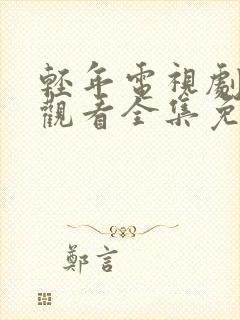 輕年電視劇
觀看全集免
鄭言